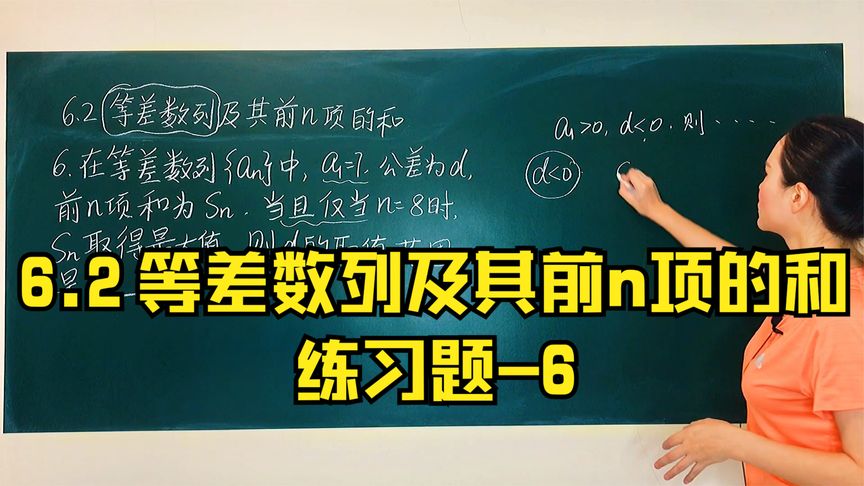 6.2 等差数列及其前n项的和
6.在等差数列{an}中, a1=7. 公差为d,
前n项和为Sn. 当且仅当n=8时,
Sn取得最大值
a1>0, d<0. 则 ····
d<0
6.2 等差数列及其前n项的和
练习题-6